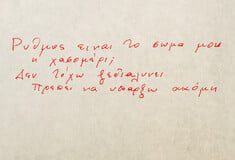 Ρυθμος ειναι το σωμα μου
η χασομερι;
Δεν τεχω ξεδιαλυνει
Πρεπει να υπαρξω ακομη